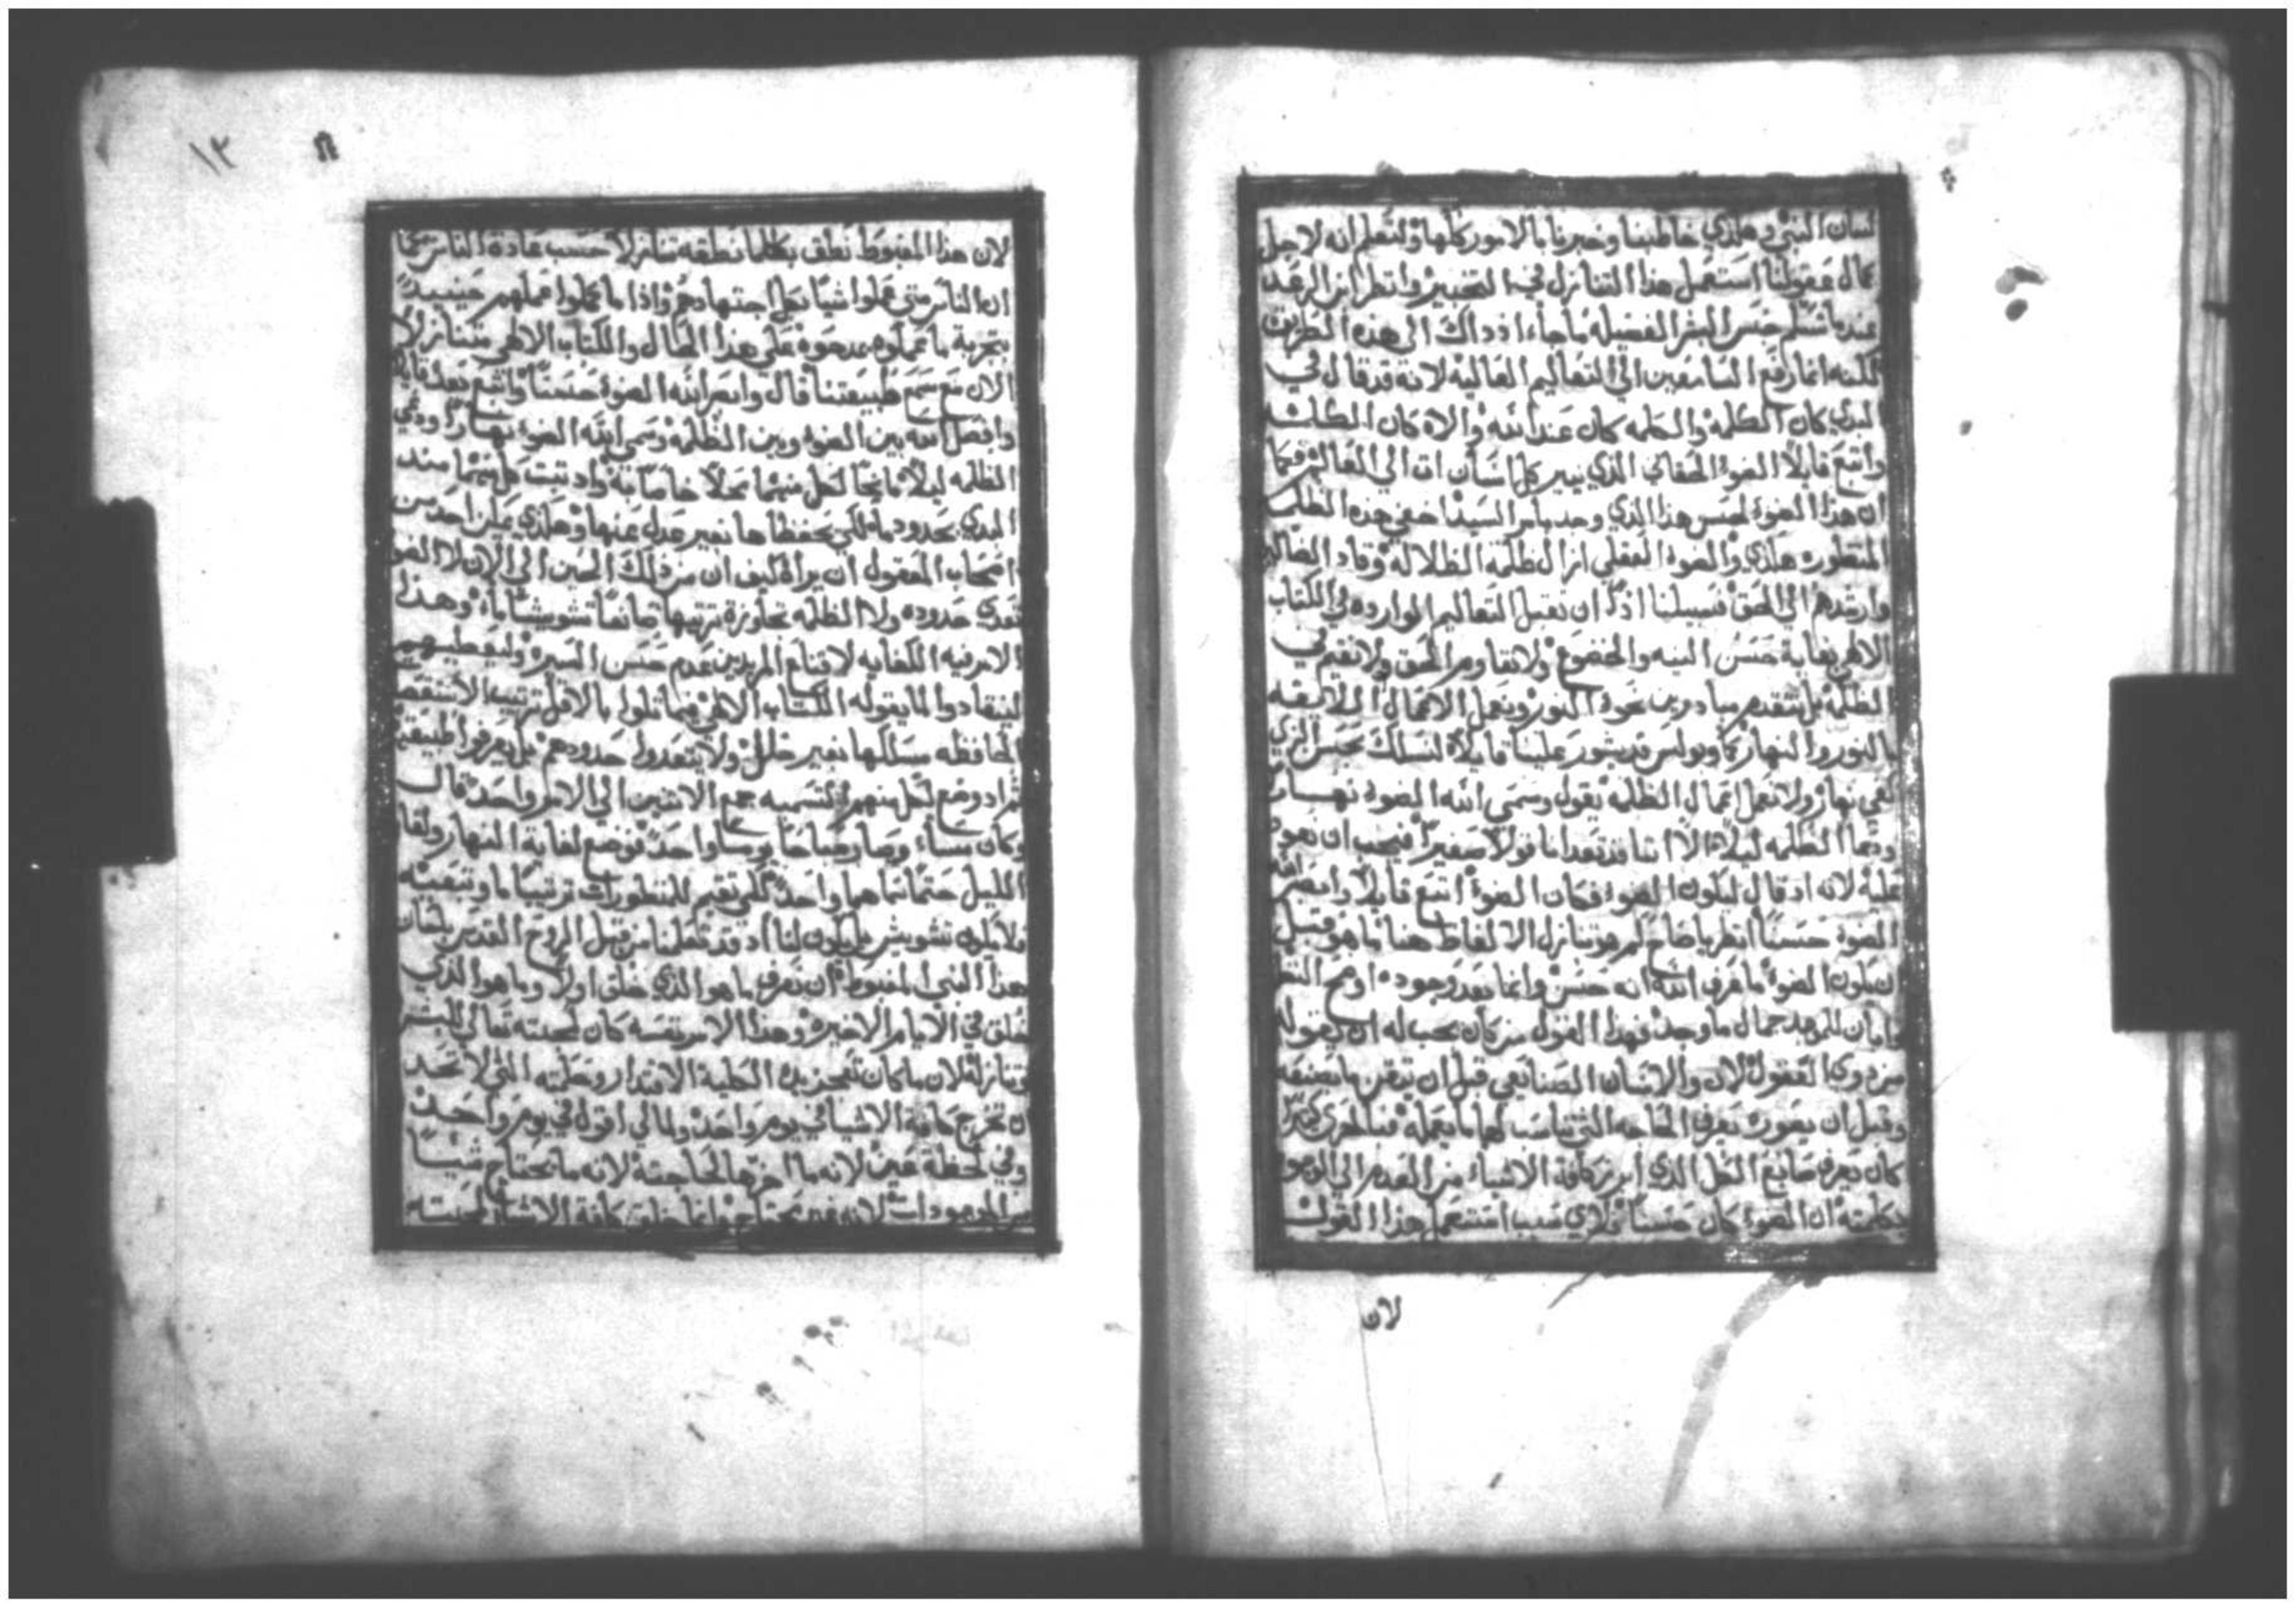 لسان النبي وهكذي خاطبنا وخبرنا بالامور كلها ولتعلم انه لاجل
كمال عقولنا استعمل هذا التنازل في التخبير وانظر ابن الرعد
عندما تسلم جنس البشر الفضيله ما جاء اذ ذاك الى هذه الطريق
لكنه انما رفع السامعين الى التعاليم العاليه لانه قد قال في
البدي كان الكلمه والكلمه كان عند الله والاه كان الكلمه
واتبع قايلاً الضوء الحقاني الذي ينير كل انسان ات الى العالم فكما
ان هذا الضوء الذي وجد بامر السيد اخفي هذه الظلمه
المنظوره هكذي والضوء العقلي ازال ظلمة الظلاله وقاد الضالين
وارشدهم الى الحق فسبيلنا اذاً ان نقبل التعاليم الوارده في الكتاب
الالاهي بغاية حسن النيه والخضوع ولا نقاوم الحق ولا نقيم في
الظلمه بل نتقدم مبادرين نحو النور ونعمل الاعمال اللايقه
بالنور والنهار كما وبولس قد يشور علينا قايلاً لنسلك بحسن الزي
كفي نهار ولا نعمل اعمال الظلمه يقول وسمى الله الضوء نهاراً
ودعا الظلمه ليلاً الا اننا قد تعدانا قولاً صغيراً فيجب ان نعود
عليه لانه اذ قال ليكون الضوء فكان الضوء اتبع قايلاً وابصر الله
الضوء حسناً انظر ياصاح كم هو تنازل الالفاظ هنا ما هو قبل
ان يكون الضوء ما عرف الله انه حسن وانما بعد وجوده اوضح النظر
ما وجد فهذا القول من كان يجب له ان يقوله
من ذوي العقول لان والانسان الصنايعي قبل ان يتقن ما يصنعه
وقبل ان يصوره يعرف الحاجه التي تناسب لها ما يعمله فبالحري كثيراً
كان يعرف صانع الكل الذي ابرز كافة الاشياء من العدم الى الوجود
بكلمته ان الضوء كان حسناً فلاي سبب استعمل هذا القول
لان
١٣
لان هذا المغبوط نطق بكلما نطقه متنازلاً حسب عادة الناس كما
ان الناس متى عملوا شياً بكل اجتهادهم واذا ما كملوا عملهم حينيذٍ
بتجربة ما عملوه يمدحوه على هذا الحال والكتاب الالاهي متنازلاً
الان مع سمع طبيعتنا قال وابصر الله الضوء حسناً واتبع بعد قايلاً
وافصل الله بين الضوء وبين الظلمه وسمى الله الضوء نهاراً ودعى
الظلمه ليلاً مانحاً لكل منهما محلاً خاصاً به واذ ثبت كل منهما منذ
البدي بحدود ما لكي يحفظاها بغير عدل عنها وهكذي يمكن احد من
اصحاب العقول ان يراه كيف ان من ذلك الحين الى الان لا الضوء
تعدى حدوده ولا الظلمه تجاوزة ترتيبها صانعاً تشويشاً ما وهذا
الامر فيه الكفايه لاقناع المريدين عدم حسن السيره
لينقادوا لما يقوله الكتاب الالاهي بالاقل ترتيب
الحافظه مسلكها بغير خلل ولا يتعدوا حدودهم بل يعرفوا طبيعتهم
ثم اذ وضع لكل منهم التسميه جمع الاثنين الى الامر واحد قال
وكان مساء وصار صباحاً يوماً واحداً فوضع لغاية النهار ولغاية
الليل واحد لكي تقيم للمنظورات ترتيباً ما
فلا يكون تشويش بل يكون لنا اذ قد تعلمنا من قبل الروح القدس بلسان
هذا النبي المغبوط ان نعرف ما هو الذي خلق اولاً وما هو الذي
خلق في الايام الاخيره وهذا الامر نفسه كان لمحبته تعالى للبشر
وتنازله لان ما كان تعجز يده الكلية الاقتدار وحكمته التي لا تحد
ان تخرج كافة الاشيا في يوم واحد ولمالي اقول في يوم واحد
وفي لحظة عين لانه ما اخرجها لحاجته لانه ما يحتاج شياً
من الموجودات لانه غير محتاج وانما خلق كافة الاشيا لمحبته